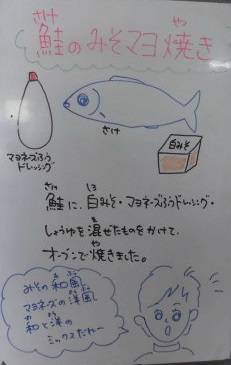 鮭のみそマヨ焼き
さけ や
マヨネーズふう
ドレッシング
さけ
白みそ
さけ しろ
鮭に、白みそ・マヨネーズふうドレッシング・
ま
しょうゆを混ぜたものをかけて、
や
オーブンで焼きました。
わふう
みその和風
ようふう
マヨネーズの洋風
わ よう
和と洋の
ミックスだねー